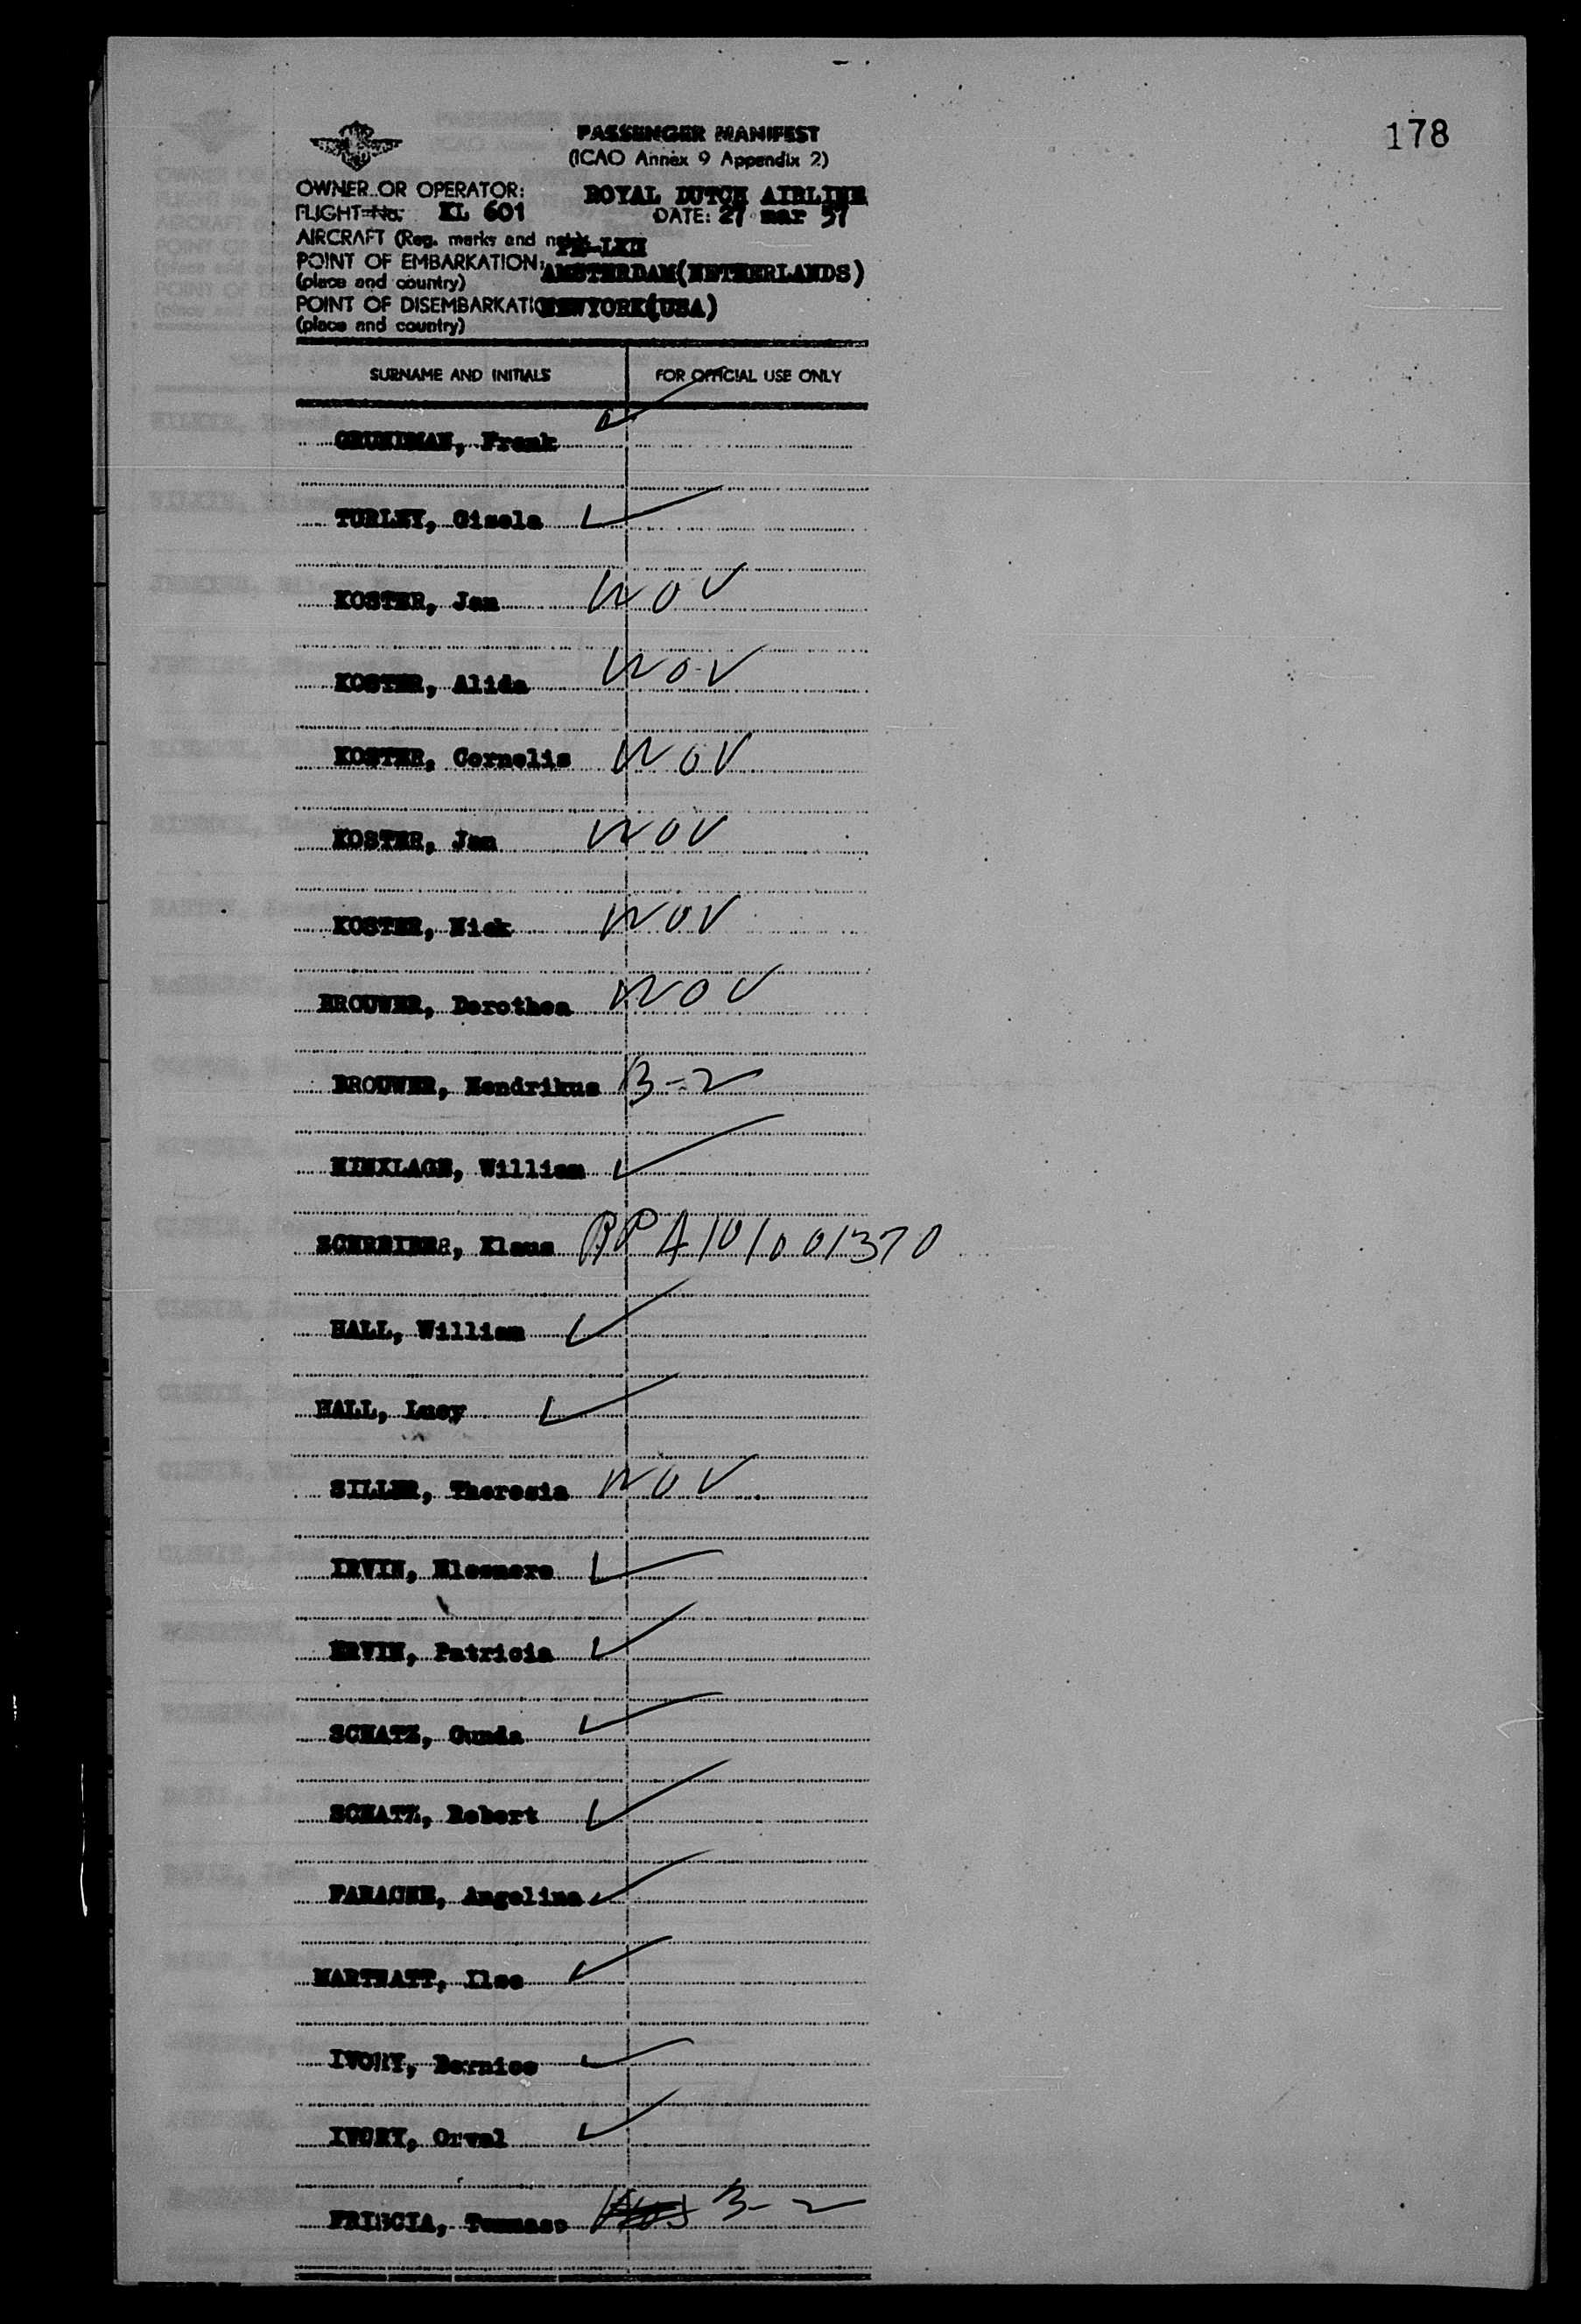 178
PASSENGER MANIFEST
(ICAO Annex 9 Appendix 2)
OWNER OR OPERATOR: ROYAL DUTCH AIRLINE
FLIGHT No. KL 601 DATE: 27 mar 57
AIRCRAFT (Reg. marks and
POINT OF EMBARKATION: AMSTERDAM(NETHERLANDS)
(place and country)
POINT OF DISEMBARKATIO NEWYORK(USA)
(place and country)
SURNAME AND INITIALS FOR OFFICIAL USE ONLY
Frank
TURLEY, Gisela
KOSTER, Jan WOV
KOSTER, Alida WOV
KOSTER, Cornelis WOV
KOSTER, Jan WOV
KOSTER, Nick WOV
BROUWER, Dorothea WOV
BROUWER, Hendrikus B-2
William
Klaus
HALL, William
HALL, Lucy
SILLER, Theresia WOV
IRVIN, Eleonore
ERVIN, Patricia
SCHATZ, Gunda
SCHATZ, Robert
Angelina
Ilse
IVORY, Bernice
IVORY, Orval
FRISCIA, Tommaso B-2